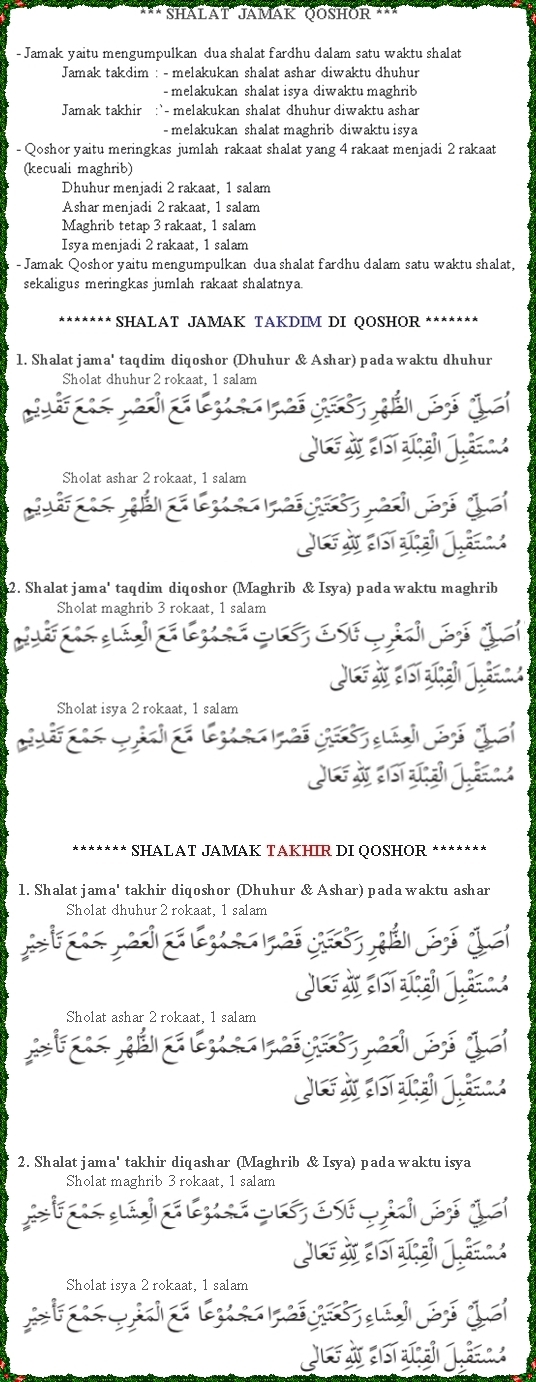 *** SHALAT JAMAK QOSHOR ***
- Jamak yaitu mengumpulkan dua shalat fardhu dalam satu waktu shalat
Jamak takdim : - melakukan shalat ashar diwaktu dhuhur
- melakukan shalat isya diwaktu maghrib
Jamak takhir :`- melakukan shalat dhuhur diwaktu ashar
- melakukan shalat maghrib diwaktu isya
- Qoshor yaitu meringkas jumlah rakaat shalat yang 4 rakaat menjadi 2 rakaat
(kecuali maghrib)
Dhuhur menjadi 2 rakaat, 1 salam
Ashar menjadi 2 rakaat, 1 salam
Maghrib tetap 3 rakaat, 1 salam
Isya menjadi 2 rakaat, 1 salam
- Jamak Qoshor yaitu mengumpulkan dua shalat fardhu dalam satu waktu shalat,
sekaligus meringkas jumlah rakaat shalatnya.
******* SHALAT JAMAK TAKDIM DI QOSHOR *******
1. Shalat jama' taqdim diqoshor (Dhuhur & Ashar) pada waktu dhuhur
Sholat dhuhur 2 rokaat, 1 salam
اُصَلِّيْ فَرْضَ الظُّهْرِ رَكْعَتَيْنِ قَصْرًا مَجْمُوْعًا مَّعَ الْعَصْرِ جَمْعَ تَقْدِيْمٍ
مُسْتَقْبِلَ الْقِبْلَةِ اَدَاءً لِلّٰهِ تَعَالٰى
Sholat ashar 2 rokaat, 1 salam
اُصَلِّيْ فَرْضَ الْعَصْرِ رَكْعَتَيْنِ قَصْرًا مَجْمُوْعًا مَّعَ الظُّهْرِ جَمْعَ تَقْدِيْمٍ
مُسْتَقْبِلَ الْقِبْلَةِ اَدَاءً لِلّٰهِ تَعَالٰى
2. Shalat jama' taqdim diqoshor (Maghrib & Isya) pada waktu maghrib
Sholat maghrib 3 rokaat, 1 salam
اُصَلِّيْ فَرْضَ الْمَغْرِبِ ثَلَاثَ رَكَعَاتٍ مَّجْمُوْعًا مَّعَ الْعِشَاءِ جَمْعَ تَقْدِيْمٍ
مُسْتَقْبِلَ الْقِبْلَةِ اَدَاءً لِلّٰهِ تَعَالٰى
Sholat isya 2 rokaat, 1 salam
اُصَلِّيْ فَرْضَ الْعِشَاءِ رَكْعَتَيْنِ قَصْرًا مَجْمُوْعًا مَّعَ الْمَغْرِبِ جَمْعَ تَقْدِيْمٍ
مُسْتَقْبِلَ الْقِبْلَةِ اَدَاءً لِلّٰهِ تَعَالٰى
******* SHALAT JAMAK TAKHIR DI QOSHOR *******
1. Shalat jama' takhir diqoshor (Dhuhur & Ashar) pada waktu ashar
Sholat dhuhur 2 rokaat, 1 salam
اُصَلِّيْ فَرْضَ الظُّهْرِ رَكْعَتَيْنِ قَصْرًا مَجْمُوْعًا مَّعَ الْعَصْرِ جَمْعَ تَأْخِيْرٍ
مُسْتَقْبِلَ الْقِبْلَةِ اَدَاءً لِلّٰهِ تَعَالٰى
Sholat ashar 2 rokaat, 1 salam
اُصَلِّيْ فَرْضَ الْعَصْرِ رَكْعَتَيْنِ قَصْرًا مَجْمُوْعًا مَّعَ الظُّهْرِ جَمْعَ تَأْخِيْرٍ
مُسْتَقْبِلَ الْقِبْلَةِ اَدَاءً لِلّٰهِ تَعَالٰى
2. Shalat jama' takhir diqashar (Maghrib & Isya) pada waktu isya
Sholat maghrib 3 rokaat, 1 salam
اُصَلِّيْ فَرْضَ الْمَغْرِبِ ثَلَاثَ رَكَعَاتٍ مَّجْمُوْعًا مَّعَ الْعِشَاءِ جَمْعَ تَأْخِيْرٍ
مُسْتَقْبِلَ الْقِبْلَةِ اَدَاءً لِلّٰهِ تَعَالٰى
Sholat isya 2 rokaat, 1 salam
اُصَلِّيْ فَرْضَ الْعِشَاءِ رَكْعَتَيْنِ قَصْرًا مَجْمُوْعًا مَّعَ الْمَغْرِبِ جَمْعَ تَأْخِيْرٍ
مُسْتَقْبِلَ الْقِبْلَةِ اَدَاءً لِلّٰهِ تَعَالٰى